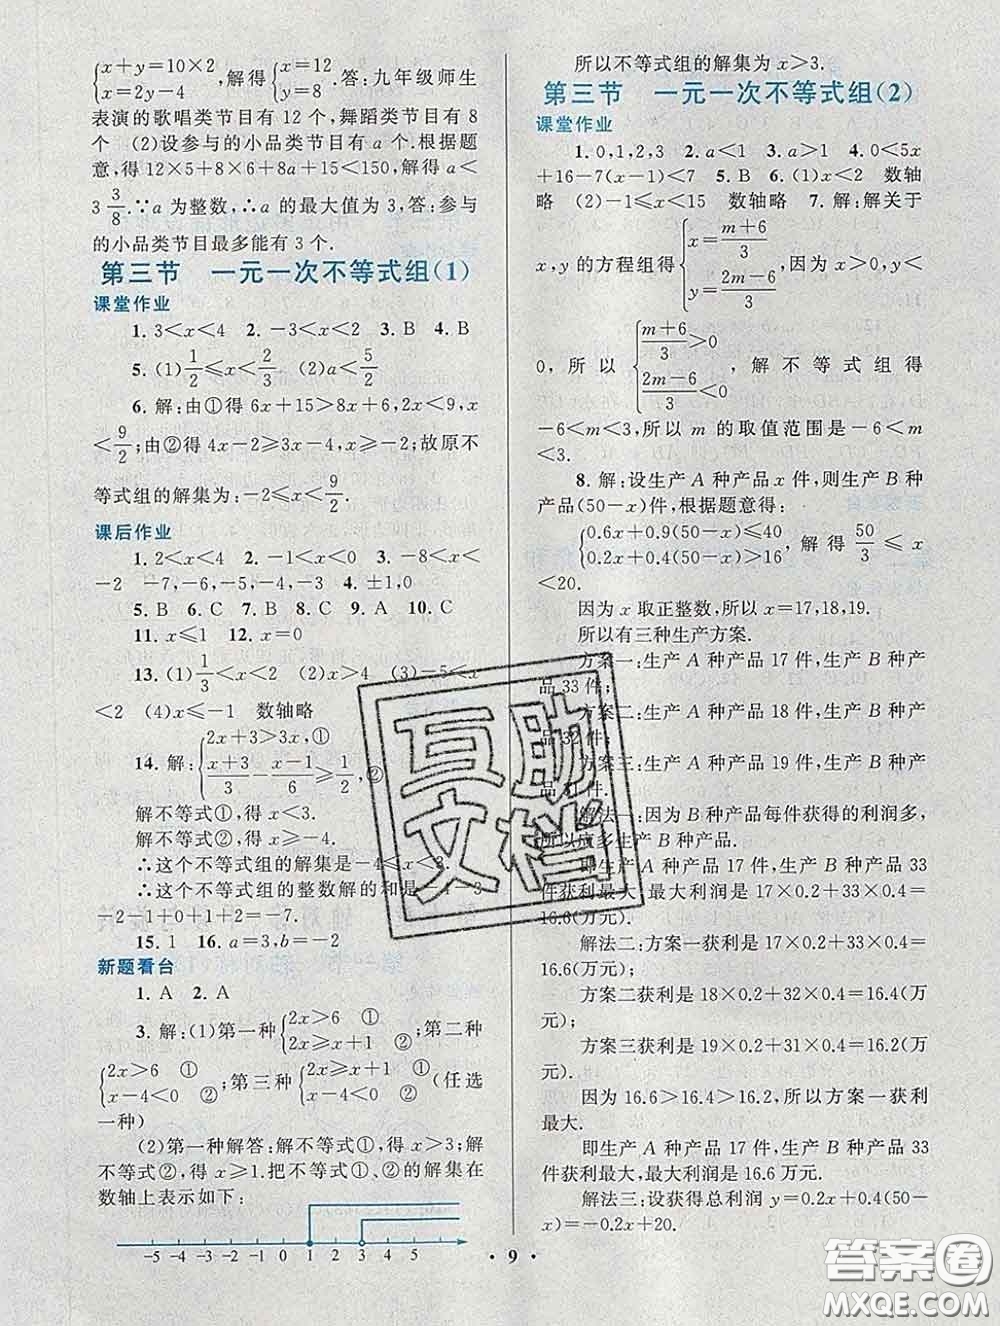 {x+y=10×2, x=2y-4 ,解得{x=12, y=8 .答:九年级师生
表演的歌唱类节目有 12 个,舞蹈类节目有 8
个 (2)设参与的小品类节目有 a 个.根据题
意,得 12×5+8×6+8a+15<150,解得 a<
3 3/8.∵a 为整数,∴a 的最大值为 3,答:参与
的小品类节目最多能有 3 个.
第三节 一元一次不等式组(1)
课堂作业
1. 3<x<4 2. -3<x<2 3. B 4. B
5. (1) 1/2≤x<2/3 (2)a<5/2
6. 解:由①得 6x+15>8x+6,2x<9,x
<9/2;由②得 4x-2≥3x-4,x≥-2;故原不
等式组的解集为:-2≤x<9/2.
课后作业
1. 2<x<4 2. -1<x<0 3. -8<x<
-2 -7,-6,-5,-4,-3 4. ±1,0
5. B 6. C 7. B 8. B 9. A 10. C
11. x≤1 12. x=0
13. (1) 1/3<x<4 (2)x>4 (3)-5<x
<2 (4)x≤-1 数轴略
14. 解:{2x+3>3x,① (x+3)/3-(x-1)/6≥1/2,②
解不等式①,得 x<3.
解不等式②,得 x≥-4.
∴这个不等式组的解集是-4≤x<3.
∴这个不等式组的整数解的和是-4-3
-2-1+0+1+2=-7.
15. 1 16. a=3,b=-2
新题看台
1. A 2. A
3. 解:(1)第一种{2x>6 ① 2x≥x+1 ②;第二种
{2x>6 ① x-4<0 ②;第三种{2x≥x+1 ① x-4<0 ② (任选
一种)
(2)第一种解答:解不等式①,得 x>3;解
不等式②,得 x≥1.把不等式①、②的解集在
数轴上表示如下:
-5 -4 -3 -2 -1 0 1 2 3 4 5
所以不等式组的解集为 x>3.
第三节 一元一次不等式组(2)
课堂作业
1. 0,1,2,3 2. a<1 3. a>1 4. 0<5x
+16-7(x-1)<7 5. B 6. (1)x<2 数轴
略 (2)-1≤x<15 数轴略 7. 解:解关于
x,y 的方程组得{x=(m+6)/3 y=(2m-6)/3,因为 x>0,y<
0,所以{(m+6)/3>0 (2m-6)/3<0,解不等式组得
-6<m<3,所以 m 的取值范围是-6<m
<3.
8. 解:设生产 A 种产品 x 件,则生产 B 种
产品(50-x)件,根据题意得:
{0.6x+0.9(50-x)≤40 0.2x+0.4(50-x)>16,解得 50/3≤x
<20.
因为 x 取正整数,所以 x=17,18,19.
所以有三种生产方案.
方案一:生产 A 种产品 17 件,生产 B 种产
品 33 件;
方案二:生产 A 种产品 18 件,生产 B 种产
品 32 件;
方案三:生产 A 种产品 19 件,生产 B 种产
品 31 件.
解法一:因为 B 种产品每件获得的利润多,
所以应多生产 B 种产品.
即生产 A 种产品 17 件,生产 B 种产品 33
件获利最大,最大利润是 17×0.2+33×0.4=
16.6(万元).
解法二:方案一获利是 17×0.2+33×0.4=
16.6(万元);
方案二获利是 18×0.2+32×0.4=16.4(万
元);
方案三获利是 19×0.2+31×0.4=16.2(万
元).
因为 16.6>16.4>16.2,所以方案一获利
最大.
即生产 A 种产品 17 件,生产 B 种产品 33
件获利最大,最大利润是 16.6 万元.
解法三:设获得总利润 y=0.2x+0.4(50-
x)=-0.2x+20.
· 9 ·
互助
文档
答案圈
MXQE.COM